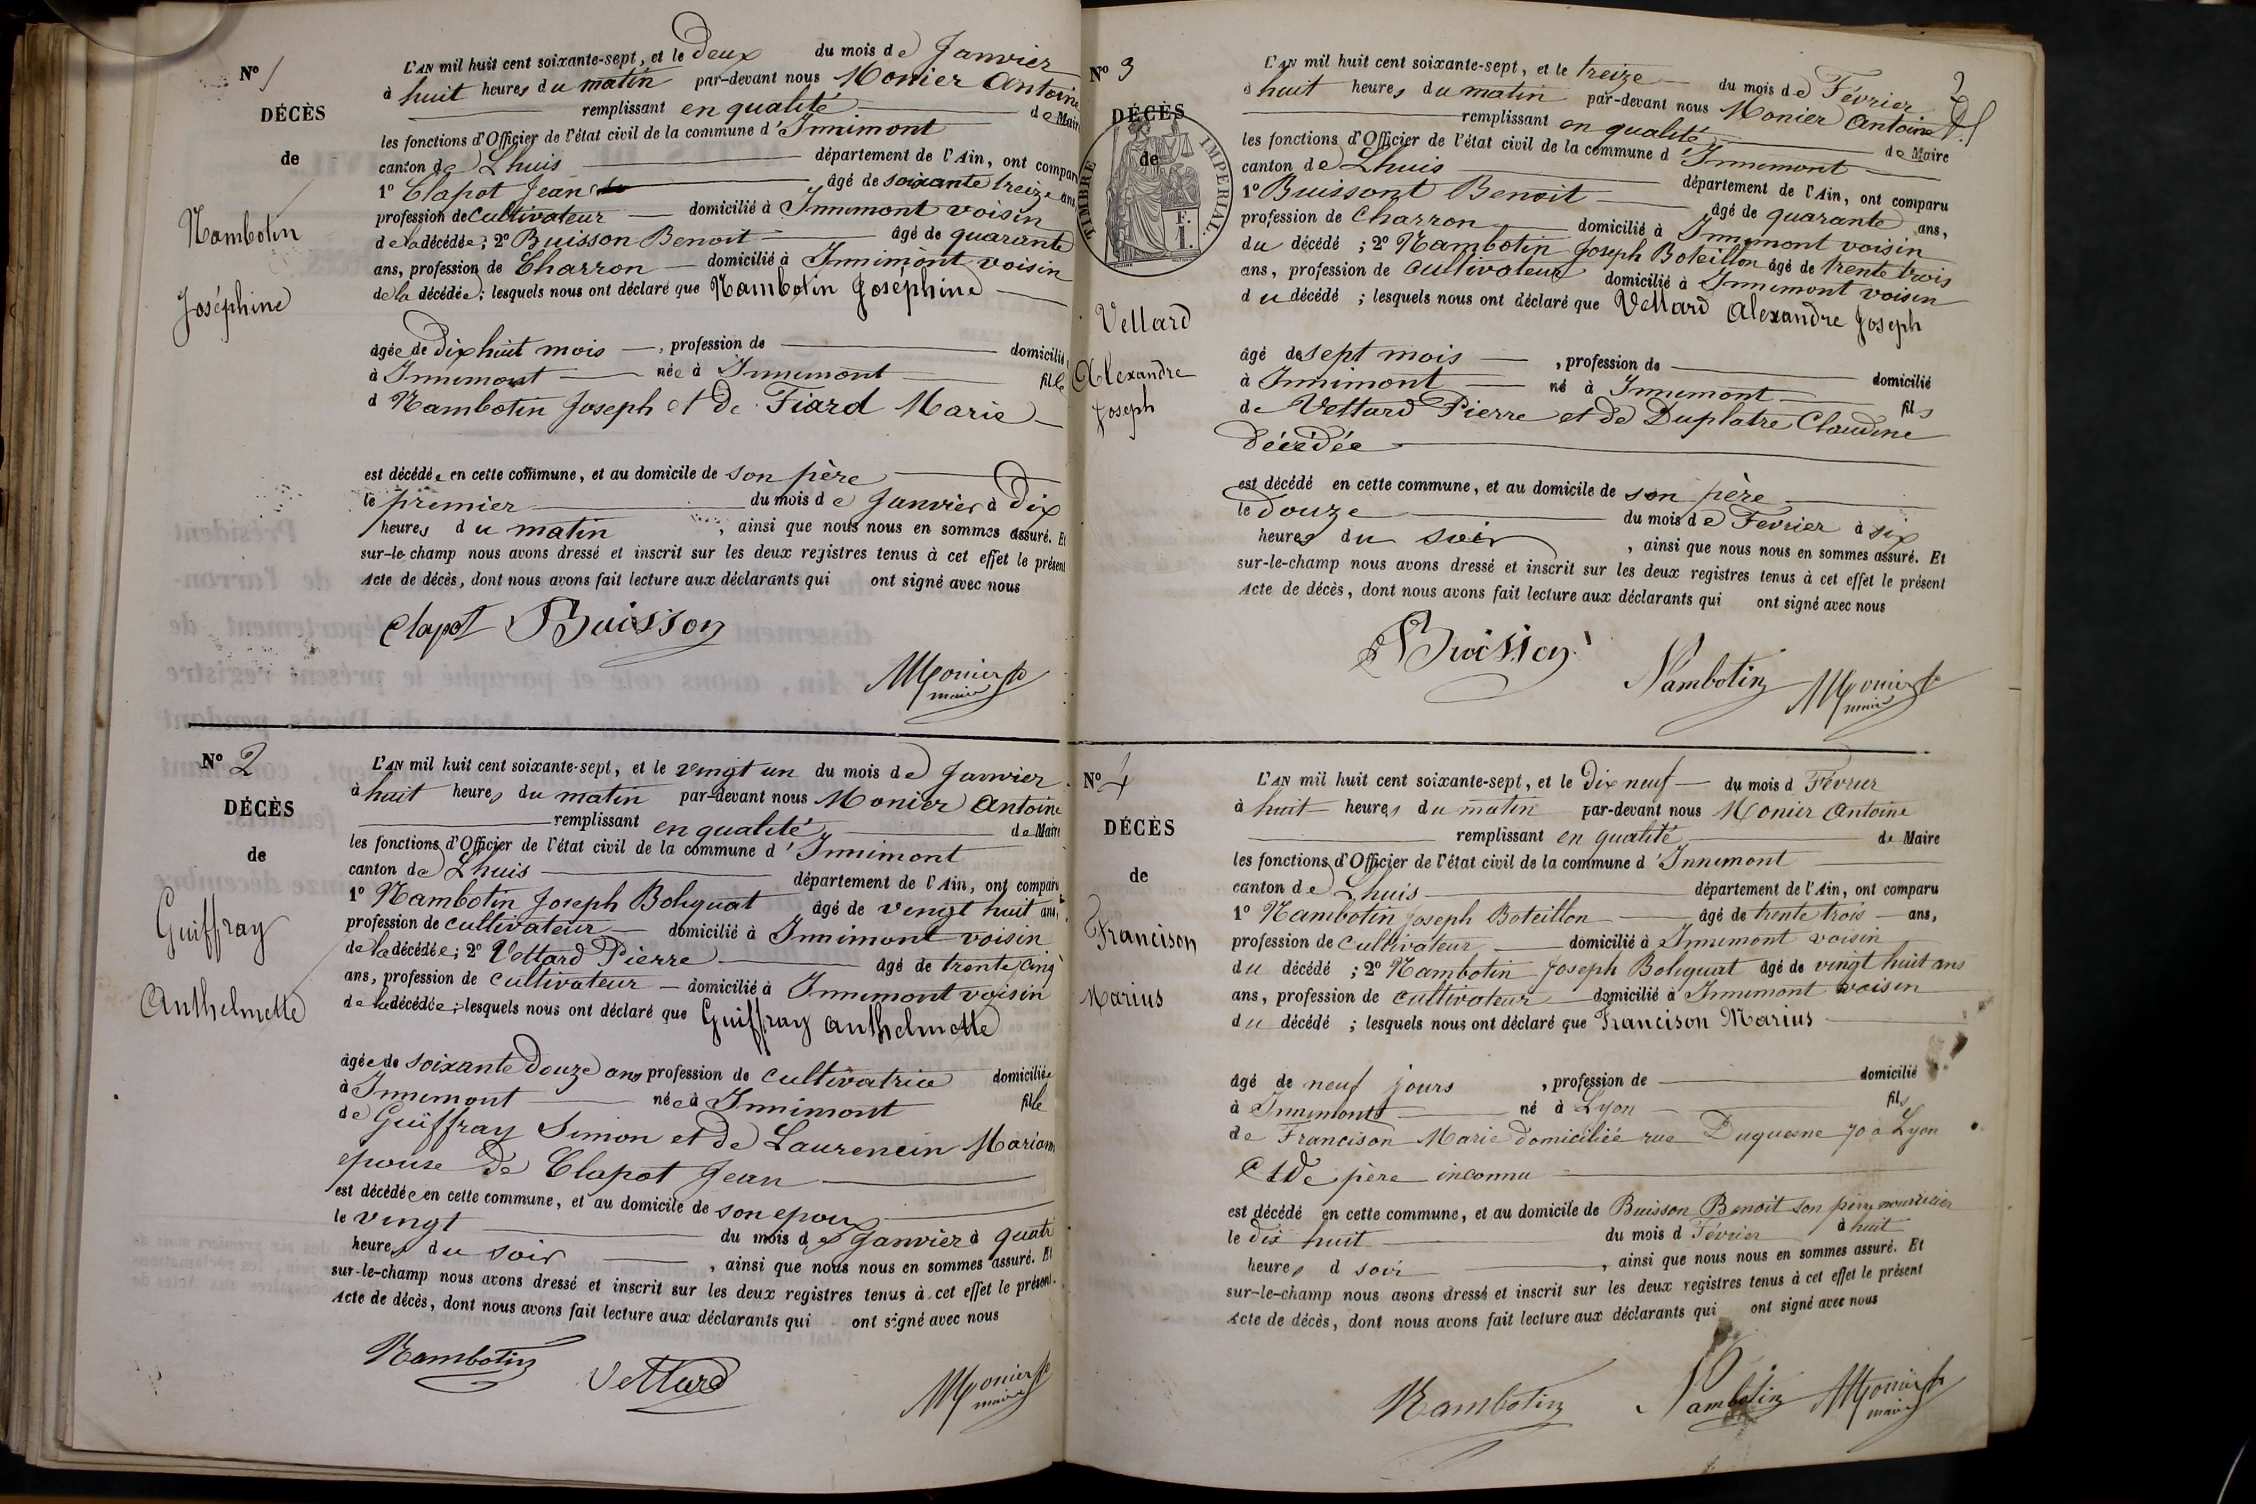 N° 1
DÉCÈS
de
Nambotin
Joséphine
L'AN mil huit cent soixante-sept, et le deux du mois de Janvier
à huit heures du matin par-devant nous Monier Antoine
remplissant en qualité de Maire
les fonctions d'Officier de l'état civil de la commune d'Innimont
canton de Lhuis département de l'Ain, ont comparu
1° Clapot Jean âgé de soixante treize ans
profession de cultivateur domicilié à Innimont voisin
de la décédée; 2° Buisson Benoit âgé de quarante
ans, profession de Charron domicilié à Innimont voisin
de la décédée; lesquels nous ont déclaré que Nambotin Joséphine
âgée de dix huit mois, profession de domicilié
à Innimont née à Innimont fille
d Nambotin Joseph et de Fiard Marie
est décédée en cette commune, et au domicile de son père
le premier du mois de Janvier à dix
heures du matin, ainsi que nous nous en sommes assuré. Et
sur-le-champ nous avons dressé et inscrit sur les deux registres tenus à cet effet le présent
Acte de décès, dont nous avons fait lecture aux déclarants qui ont signé avec nous
Clapot Buisson
Monier
maire
N° 2
DÉCÈS
de
Guiffray
Anthelmette
L'AN mil huit cent soixante-sept, et le vingt un du mois de Janvier
à huit heures du matin par-devant nous Monier Antoine
remplissant en qualité de Maire
les fonctions d'Officier de l'état civil de la commune d'Innimont
canton de Lhuis département de l'Ain, ont comparu
1° Nambotin Joseph Boliquat âgé de vingt huit ans,
profession de cultivateur domicilié à Innimont voisin
de la décédée; 2° Vettard Pierre âgé de trente cinq
ans, profession de cultivateur domicilié à Innimont voisin
de la décédée; lesquels nous ont déclaré que Guiffray Anthelmette
âgée de soixante douze ans profession de cultivatrice domiciliée
à Innimont née à Innimont fille
de Guiffray Simon et de Laurencin Mariann
epouse de Clapot Jean
est décédée en cette commune, et au domicile de son epoux
le vingt du mois de Janvier à quatre
heures du soir, ainsi que nous nous en sommes assuré. Et
sur-le-champ nous avons dressé et inscrit sur les deux registres tenus à cet effet le présent
Acte de décès, dont nous avons fait lecture aux déclarants qui ont signé avec nous
Nambotin Vettard Monier
maire
2
N° 3
DÉCÈS
de
TIMBRE IMPÉRIAL.
Vettard
Alexandre
Joseph
L'AN mil huit cent soixante-sept, et le treize du mois de Février
à huit heures du matin par-devant nous Monier Antoine
remplissant en qualité de Maire
les fonctions d'Officier de l'état civil de la commune d'Innimont
canton de Lhuis département de l'Ain, ont comparu
1° Buissont Benoit âgé de quarante ans,
profession de Charron domicilié à Innimont voisin
du décédé; 2° Nambotin Joseph Boteillon âgé de trente trois
ans, profession de cultivateur domicilié à Innimont voisin
du décédé; lesquels nous ont déclaré que Vettard Alexandre Joseph
âgé de sept mois, profession de domicilié
à Innimont né à Innimont fils
de Vettard Pierre et de Duplatre Claudine
décédée
est décédé en cette commune, et au domicile de son père
le douze du mois de Fevrier à six
heures du soir, ainsi que nous nous en sommes assuré. Et
sur-le-champ nous avons dressé et inscrit sur les deux registres tenus à cet effet le présent
Acte de décès, dont nous avons fait lecture aux déclarants qui ont signé avec nous
Buisson Nambotin Monier
maire
N° 4
DÉCÈS
de
Francison
Marius
L'AN mil huit cent soixante-sept, et le dix neuf du mois d Février
à huit heures du matin par-devant nous Monier Antoine
remplissant en qualité de Maire
les fonctions d'Officier de l'état civil de la commune d'Innimont
canton de Lhuis département de l'Ain, ont comparu
1° Nambotin Joseph Boteillon âgé de trente trois ans,
profession de cultivateur domicilié à Innimont voisin
du décédé; 2° Nambotin Joseph Boliquat âgé de vingt huit ans
ans, profession de cultivateur domicilié à Innimont voisin
du décédé; lesquels nous ont déclaré que Francison Marius
âgé de neuf jours, profession de domicilié
à Innimont né à Lyon fils
de Francison Marie domiciliée rue Duquesne 70 à Lyon
et de père inconnu
est décédé en cette commune, et au domicile de Buisson Benoit son père nourricier
le dix huit du mois d Février à huit
heures d soir, ainsi que nous nous en sommes assuré. Et
sur-le-champ nous avons dressé et inscrit sur les deux registres tenus à cet effet le présent
Acte de décès, dont nous avons fait lecture aux déclarants qui ont signé avec nous
Nambotin Nambotin Monier
maire